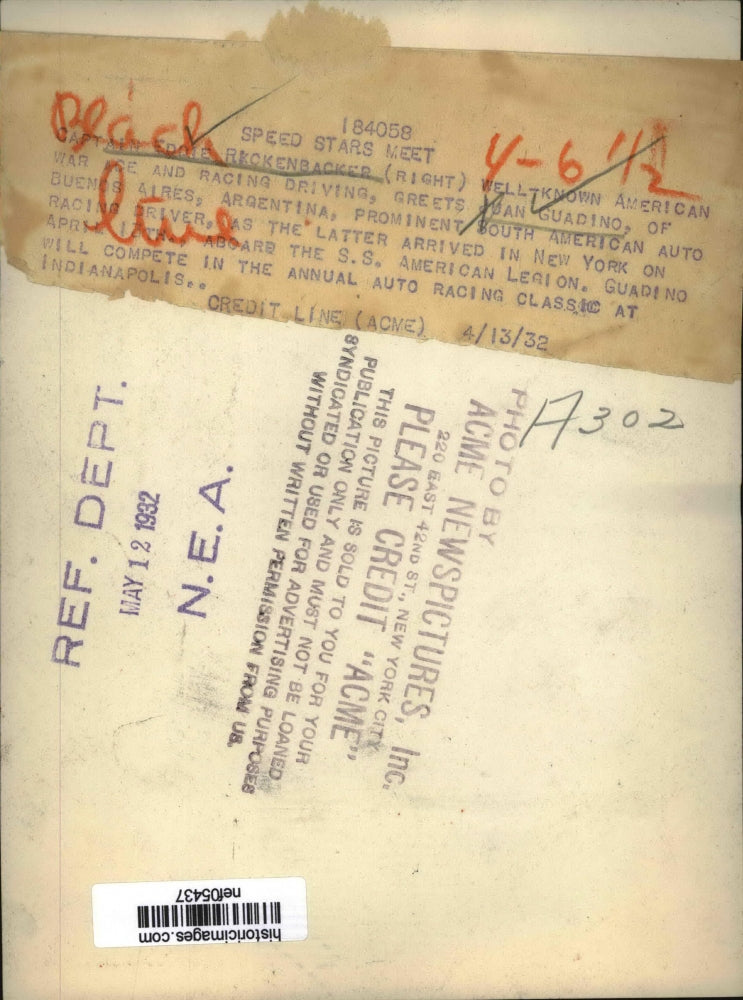 184058
SPEED STARS MEET
CAPTAIN EDDIE RICKENBACKER (RIGHT) WELL-KNOWN AMERICAN
WAR ACE AND RACING DRIVING, GREETS JUAN GUADINO, OF
BUENOS AIRES, ARGENTINA, PROMINENT SOUTH AMERICAN AUTO
RACING DRIVER, AS THE LATTER ARRIVED IN NEW YORK ON
APRIL 12TH ABOARD THE S.S. AMERICAN LEGION. GUADINO
WILL COMPETE IN THE ANNUAL AUTO RACING CLASSIC AT
INDIANAPOLIS..
CREDIT LINE (ACME) 4/13/32
Black
line
4-6 1/2
A302
PHOTO BY
ACME NEWSPICTURES, Inc.
220 EAST 42ND ST., NEW YORK CITY
PLEASE CREDIT "ACME"
THIS PICTURE IS SOLD TO YOU FOR YOUR
PUBLICATION ONLY AND MUST NOT BE LOANED
SYNDICATED OR USED FOR ADVERTISING PURPOSES
WITHOUT WRITTEN PERMISSION FROM US.
REF. DEPT.
MAY 12 1932
N.E.A.
historicimages.com
nef05437